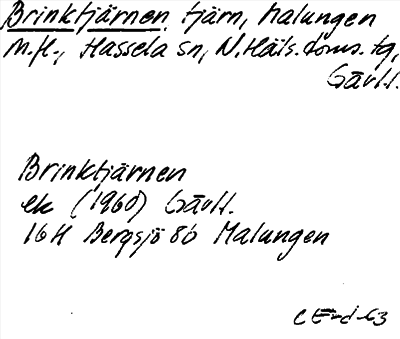 Brinktjärnen, tjärn, Malungen
m.fl., Hassela sn, N.Häls.doms.tg,
Gävl.l.
Brinktjärnen
ek (1960) Gävl.
16H Bergsjö 8b Malungen